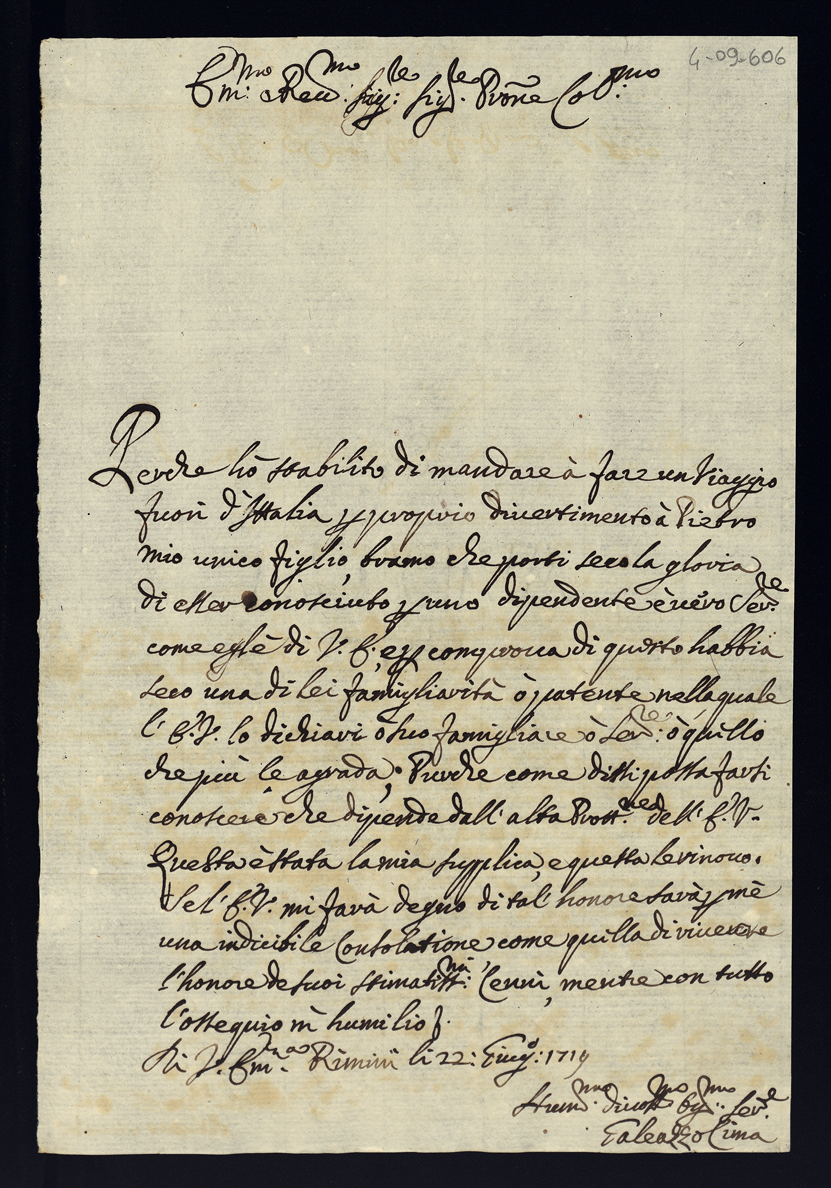 4-09-606
Em:mo e Reu:mo Sig:re Sig:re Prone Col:mo
Perche hò stabilito di mandare à fare un Viaggio
fuori d'Ittalia p proprio divertimento à Pietro
mio unico figlio, bramo che porti seco la gloria
di esser conosciuto p uno dipendente è uero Ser:re
come eglè di V. E., e p comproua di questo habbia
seco una di lei famigliarità ò patente nella quale
l'E. V. lo dichiari ò suo famigliare ò Ser:re ò quello
che più le agrada; Purche come dissi possa farsi
conoscere che dipende dall'alta Prott:ne dell'E. V.
Questa è stata la mia supplica, e questa le rinouo.
Se l'E. V. mi farà degno di tal'honore sarà p mè
una indicibile Consolatione, come quella di riceuere
l'honore de suoi stimatiss:mi Cenni, mentre con tutto
l'ossequio m'humilio p.
Di V. Em:za Rimini li 22: Giug:o: 1719
Hum:mo diuot:mo obg:mo Ser:re
Galeazzo Cima